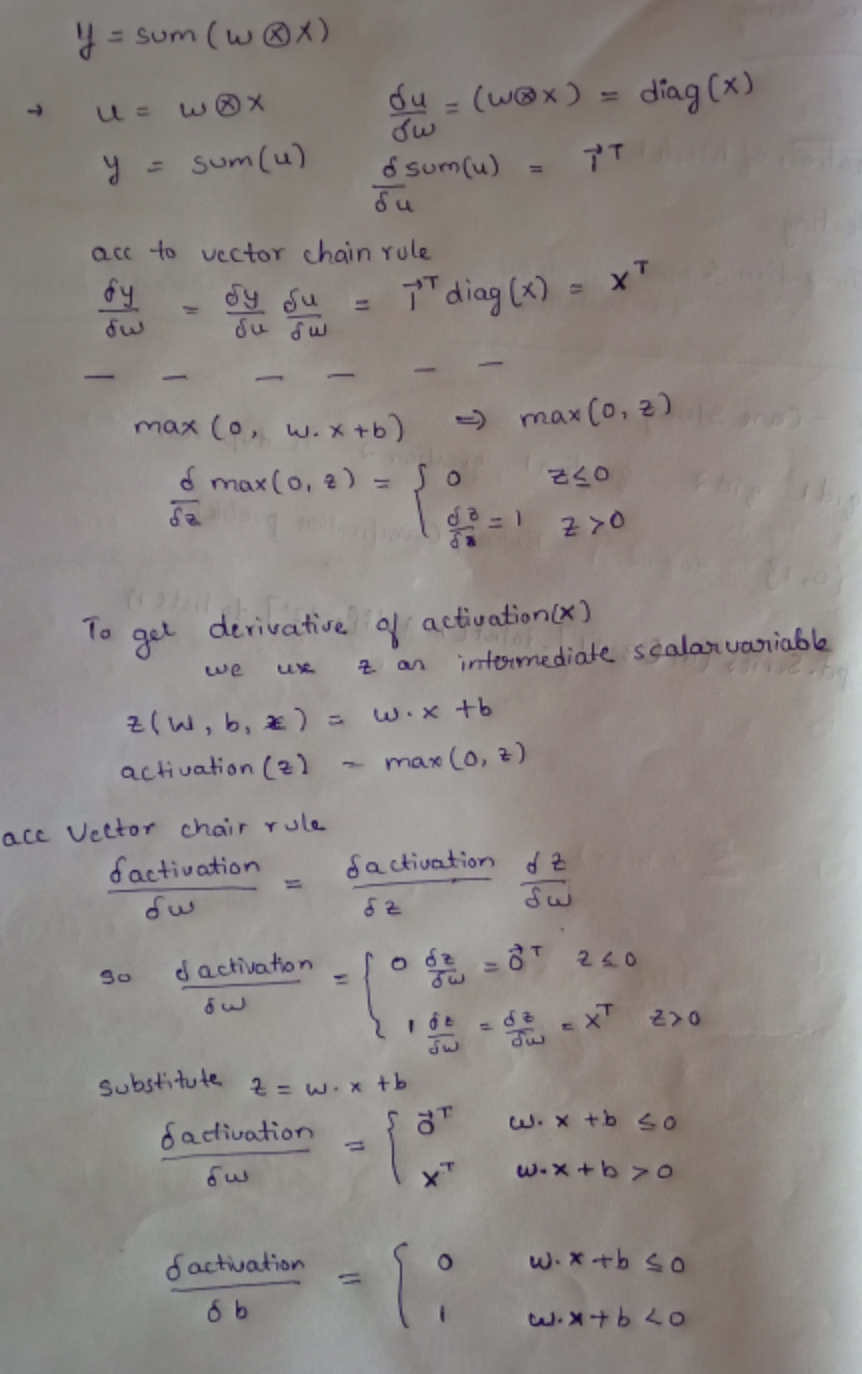 y = sum(w ⊗ x)
→ u = w ⊗ x δu/δw = (w⊗x) = diag(x)
y = sum(u) δ/δu sum(u) = 1⃗ᵀ
acc to vector chain rule
δy/δw = δy/δu δu/δw = 1⃗ᵀ diag(x) = xᵀ
— — — — — —
max(0, w.x+b) ⇒ max(0, z)
δ/δz max(0, z) = { 0 z≤0
δz/δz = 1 z>0
To get derivative of activation(x)
we use z an intermediate scalar variable
z(w, b, x) = w.x + b
activation(z) = max(0, z)
acc Vector chair rule
δactivation/δw = δactivation/δz δz/δw
so δactivation/δw = { 0 δz/δw = 0⃗ᵀ z≤0
1 δz/δw = δz/δw = xᵀ z>0
Substitute z = w.x + b
δactivation/δw = { 0⃗ᵀ w.x+b ≤0
xᵀ w.x+b >0
δactivation/δb = { 0 w.x+b ≤0
1 w.x+b <0